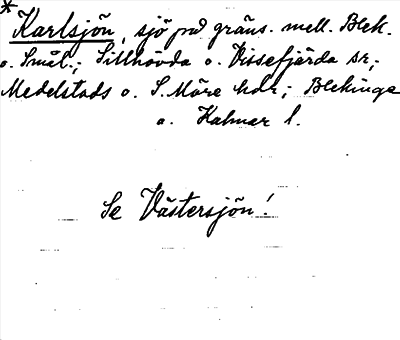 * Karlsjön, sjö på gräns. mell. Blek.
o. Smål.; Sillhovda o. Vissefjärda sr;
Medelstads o. S. Möre hdr; Blekinge
o. Kalmar l.
Se Västersjön!